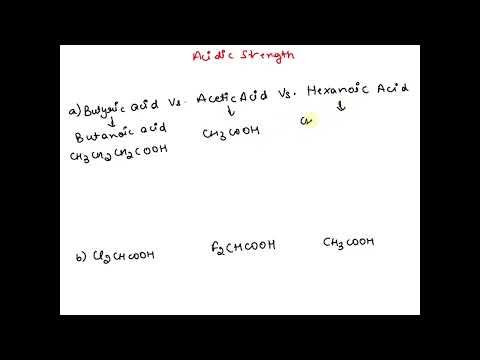 Acidic Strength
a) Butyric acid Vs. Acetic Acid Vs. Hexanoic Acid
↓ ↓ ↓
Butanoic acid CH3COOH C
CH3CH2CH2COOH
b) Cl2CHCOOH F2CHCOOH CH3COOH